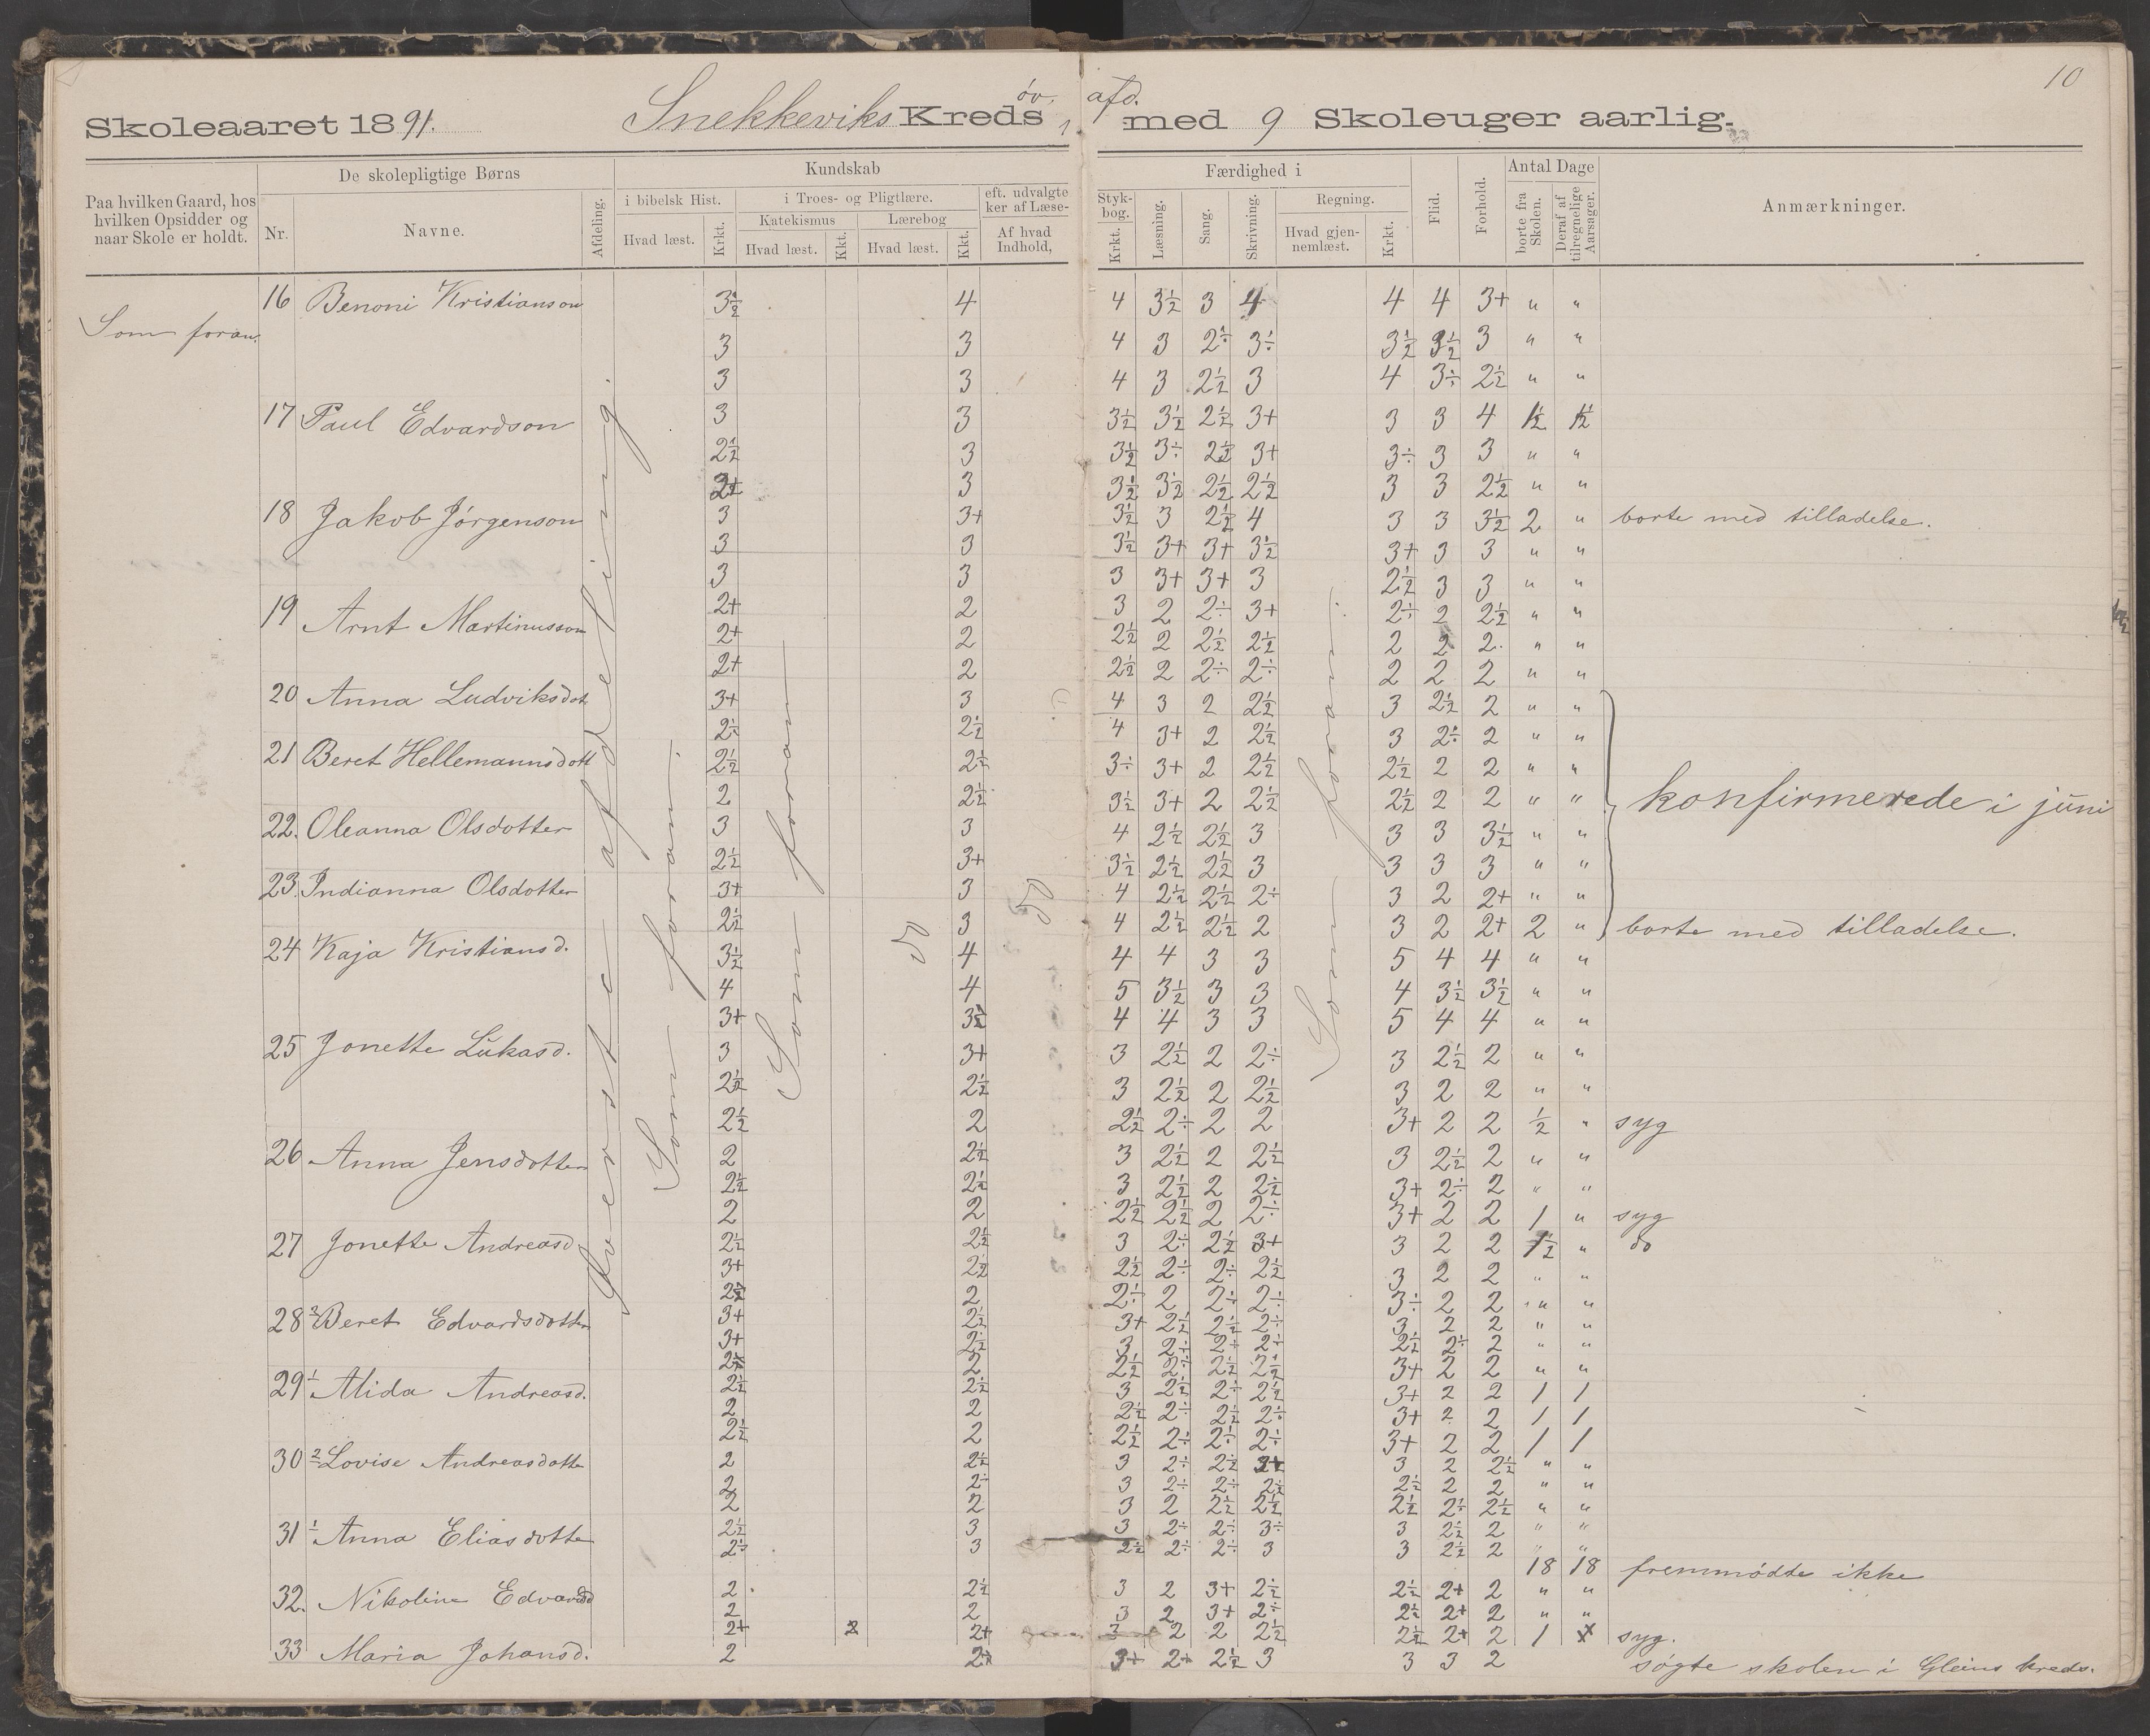 10
Skoleaaret 1891. Snekkeviks Kreds öv. afd. med 9 Skoleuger aarlig.
Paa hvilken Gaard, hos hvilken Opsidder og naar Skole er holdt.
De skolepligtige Børns
Nr.
Navne.
Afdeling.
Kundskab
i bibelsk Hist.
Hvad læst.
Krkt.
i Troes- og Pligtlære.
Katekismus
Hvad læst.
Kkt.
Lærebog
Hvad læst.
Kkt.
eft. udvalgte Styk-
ker af Læse- bog.
Af hvad Indhold,
Krkt.
Færdighed i
Læsning.
Sang.
Skrivning.
Regning.
Hvad gjen-
nemlæst.
Krkt.
Flid.
Forhold.
Antal Dage
borte fra Skolen.
Deraf af tilregnelige Aarsager.
Anmærkninger.
Som foran.
Øverste afdeling.
Som foran.
Som foran
do
do
Som foran.
16 Benoni Kristianson 3½ 4 4 3½ 3 4 4 4 3+ " "
3 3 4 3 2÷ 3÷ 3½ 3½ 3 " "
3 3 4 3 2½ 3 4 3÷ 2½ " "
17 Paul Edvardson 3 3 3½ 3½ 2½ 3+ 3 3 4 1½ 1½
2½ 3 3½ 3÷ 2½ 3+ 3÷ 3 3 " "
2+ 3 3½ 3½ 2½ 2½ 3 3 2½ " "
18 Jakob Jörgenson 3 3+ 3½ 3 2½ 4 3 3 3½ 2 " borte med tilladelse.
3 3 3½ 3+ 3+ 3½ 3+ 3 3 " "
3 3 3 3+ 3+ 3 2½ 3 3 " "
19 Arnt Martinusson 2+ 2 3 2 2÷ 3+ 2÷ 2 2½ " "
2+ 2 2½ 2 2½ 2½ 2 2 2 " "
2+ 2 2½ 2 2÷ 2÷ 2 2 2 " "
20 Anna Ludviksdot 3+ 3 4 3 2 2½ 3 2½ 2 " "
2÷ 2½ 4 3+ 2 2½ 3 2÷ 2 " "
21 Beret Hellemannsdott 2½ 2½ 3÷ 3+ 2 2½ 2½ 2 2 " "
2 2½ 3½ 3+ 2 2½ 2½ 2 2 " " konfirmerede i juni
22. Oleanna Olsdotter 3 3 4 2½ 2½ 3 3 3 3½ " "
2½ 3+ 3½ 2½ 2½ 3 3 3 3 " "
23. Indianna Olsdotter 3+ 3 4 2½ 2½ 2÷ 3 2 2+ " "
2½ 3 4 2½ 2½ 2 3 2 2+ 2 " borte med tilladelse.
24 Kaja Kristiansd. 3½ 4 4 4 3 3 5 4 4 " "
4 4 5 3½ 3 3 4 3½ 3½ " "
3+ 3½ 4 4 3 3 5 4 4 " "
25 Jonette Lukasd. 3 3+ 3 2½ 2 2÷ 3 2½ 2 " "
2½ 2½ 3 2½ 2 2½ 3 2 2 " "
2½ 2 2½ 2÷ 2 2 3+ 2 2 ½ " syg
26 Anna Jensdotter 2 2½ 3 2½ 2 2½ 3 2½ 2 " "
2½ 2½ 3 2½ 2 2½ 3+ 2÷ 2 " "
2 2 2½ 2½ 2 2÷ 3+ 2 2 1 " syg
27 Jonette Andreasd. 2½ 2½ 3 2÷ 2½ 3+ 3 2 2 1½ " do
3+ 2½ 2½ 2÷ 2÷ 2½ 3 2 2 " "
2½ 2 2÷ 2 2÷ 2÷ 3÷ 2 2 " "
28 2 Beret Edvardsdotter 3+ 2½ 3+ 2½ 2½ 2÷ 3 2 2 " "
3+ 2½ 3 2÷ 2+ 2÷ 2½ 2÷ 2 " "
2 2½ 2÷ 2½ 2½ 3+ 2 2 " "
29 1 Alida Andreasd. 2½ 2½ 3 2½ 2÷ 2½ 3+ 2 2 1 1
2 2 2½ 2÷ 2½ 2÷ 3+ 2 2 1 1
2½ 2 2½ 2÷ 2÷ 2÷ 3+ 2 2 1 1
30 2 Lovise Andreasdotte 2 2½ 3 2÷ 2½ 3 2 2½ " "
2 2÷ 3 2÷ 2÷ 2½ 2½ 2 2 " "
2 2 3 2 2½ 2½ 2½ 2÷ 2½ " "
31 1 Anna Eliasdotte 2½ 3 3 2÷ 2÷ 3÷ 3 2½ 2 " "
2÷ 3 2½ 2÷ 2÷ 3 3 2½ 2 " "
18 18 fremmødte ikke
32. Nikoline Edvardsd 2 2½ 3 2 3+ 2½ 2½ 2+ 2 " "
2 2 3 2 3+ 2÷ 2½ 2+ 2 " "
2+ 2 2+ 3 2 2 2½ 2½ 2+ 2 1 syg.
33 Maria Johansd. 2 2+ 3+ 2+ 2½ 3 3 3 2 søgte skolen i Gleins kreds.